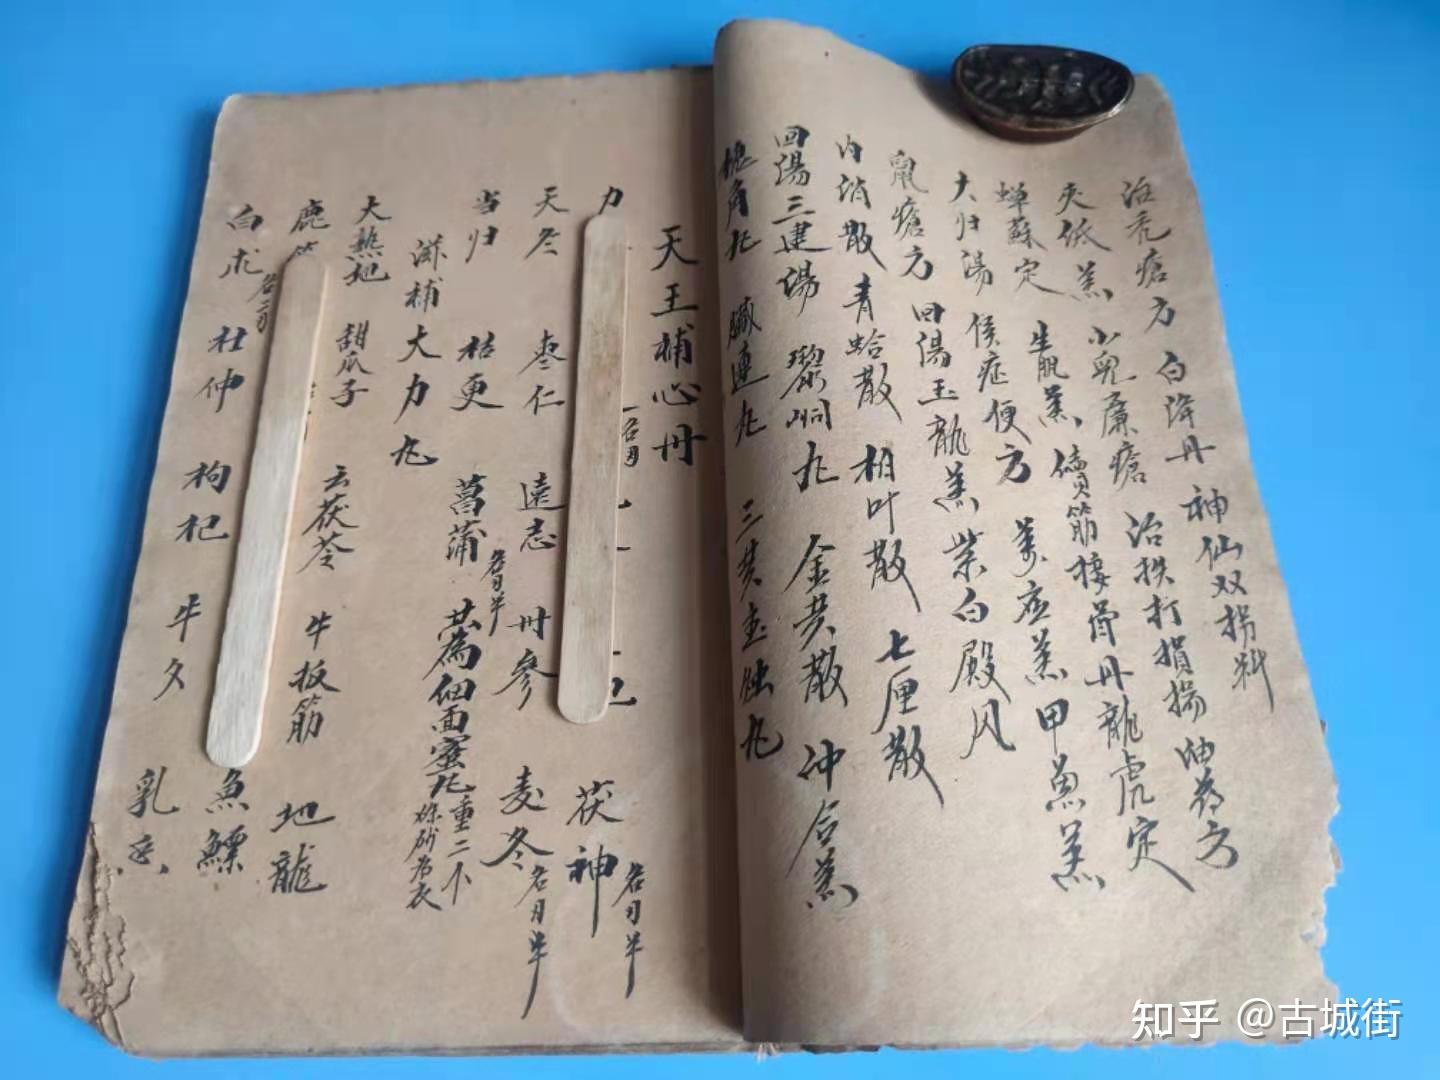 治秃瘡方 白降丹 神仙双拐料
夹纸羔 小兒廉瘡 治跌打損揚油药方
蝉蘇定 生肌羔 續筋接骨丹 龍虎定
大归湯 侯症便方 萬应羔 甲魚羔
鼠瘡方 回陽玉龍羔 紫白殿风
内消散 青蛤散 柏叶散 七厘散
回陽三建湯 黎峒丸 金黄散 冲合羔
槐角丸 臟連丸 三黄 丸
天王補心丹
力 茯神 各月半
天冬 枣仁 遠志 丹參 麦冬 各月半
当归 桔更 菖蒲 各月半 共為细面蜜丸重二个 硃砂为衣
滋補大力丸
大熟地 甜瓜子 云茯苓 牛板筋 地龍
鹿 魚鰾
白朮 杜仲 枸杞 牛夕 乳
知乎 @古城街